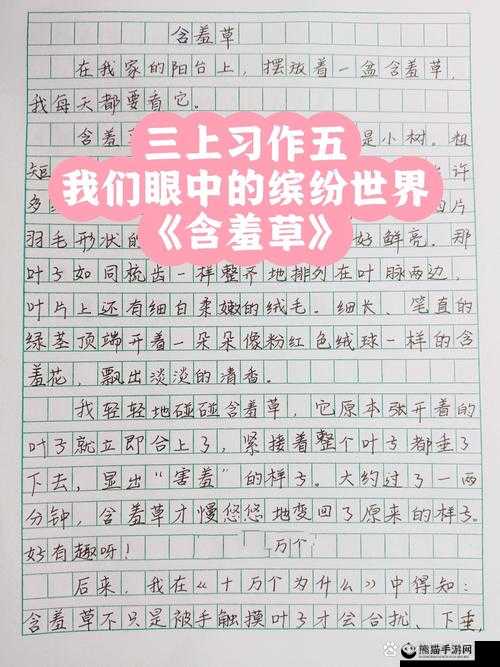 含羞草
在我家的阳台上，摆放着一盆含羞草，
我每天都要看它。
含羞 是小树。粗
短 许
三上习作五
多 片
我们眼中的缤纷世界
羽毛形状的 好鲜亮。那
《含羞草》
叶子如同梳齿一样整齐地排列在叶脉两边，
叶片上还有细白柔嫩的绒毛。细长、笔直的
绿茎顶端开着一朵朵像粉红色绒球一样的含
羞花，飘出淡淡的清香。
我轻轻地碰碰含羞草，它原本张开着的
叶子就立即合上了，紧接着整个叶子都垂了
下去，显出“害羞”的样子。大约过了一两
分钟，含羞草才慢悠悠地变回了原来的样子。
好有趣呀！
万个
后来，我在《十万个为什么》中得知：
含羞草不只是被手触摸叶子才会合拢、下垂，
熊猫手游网